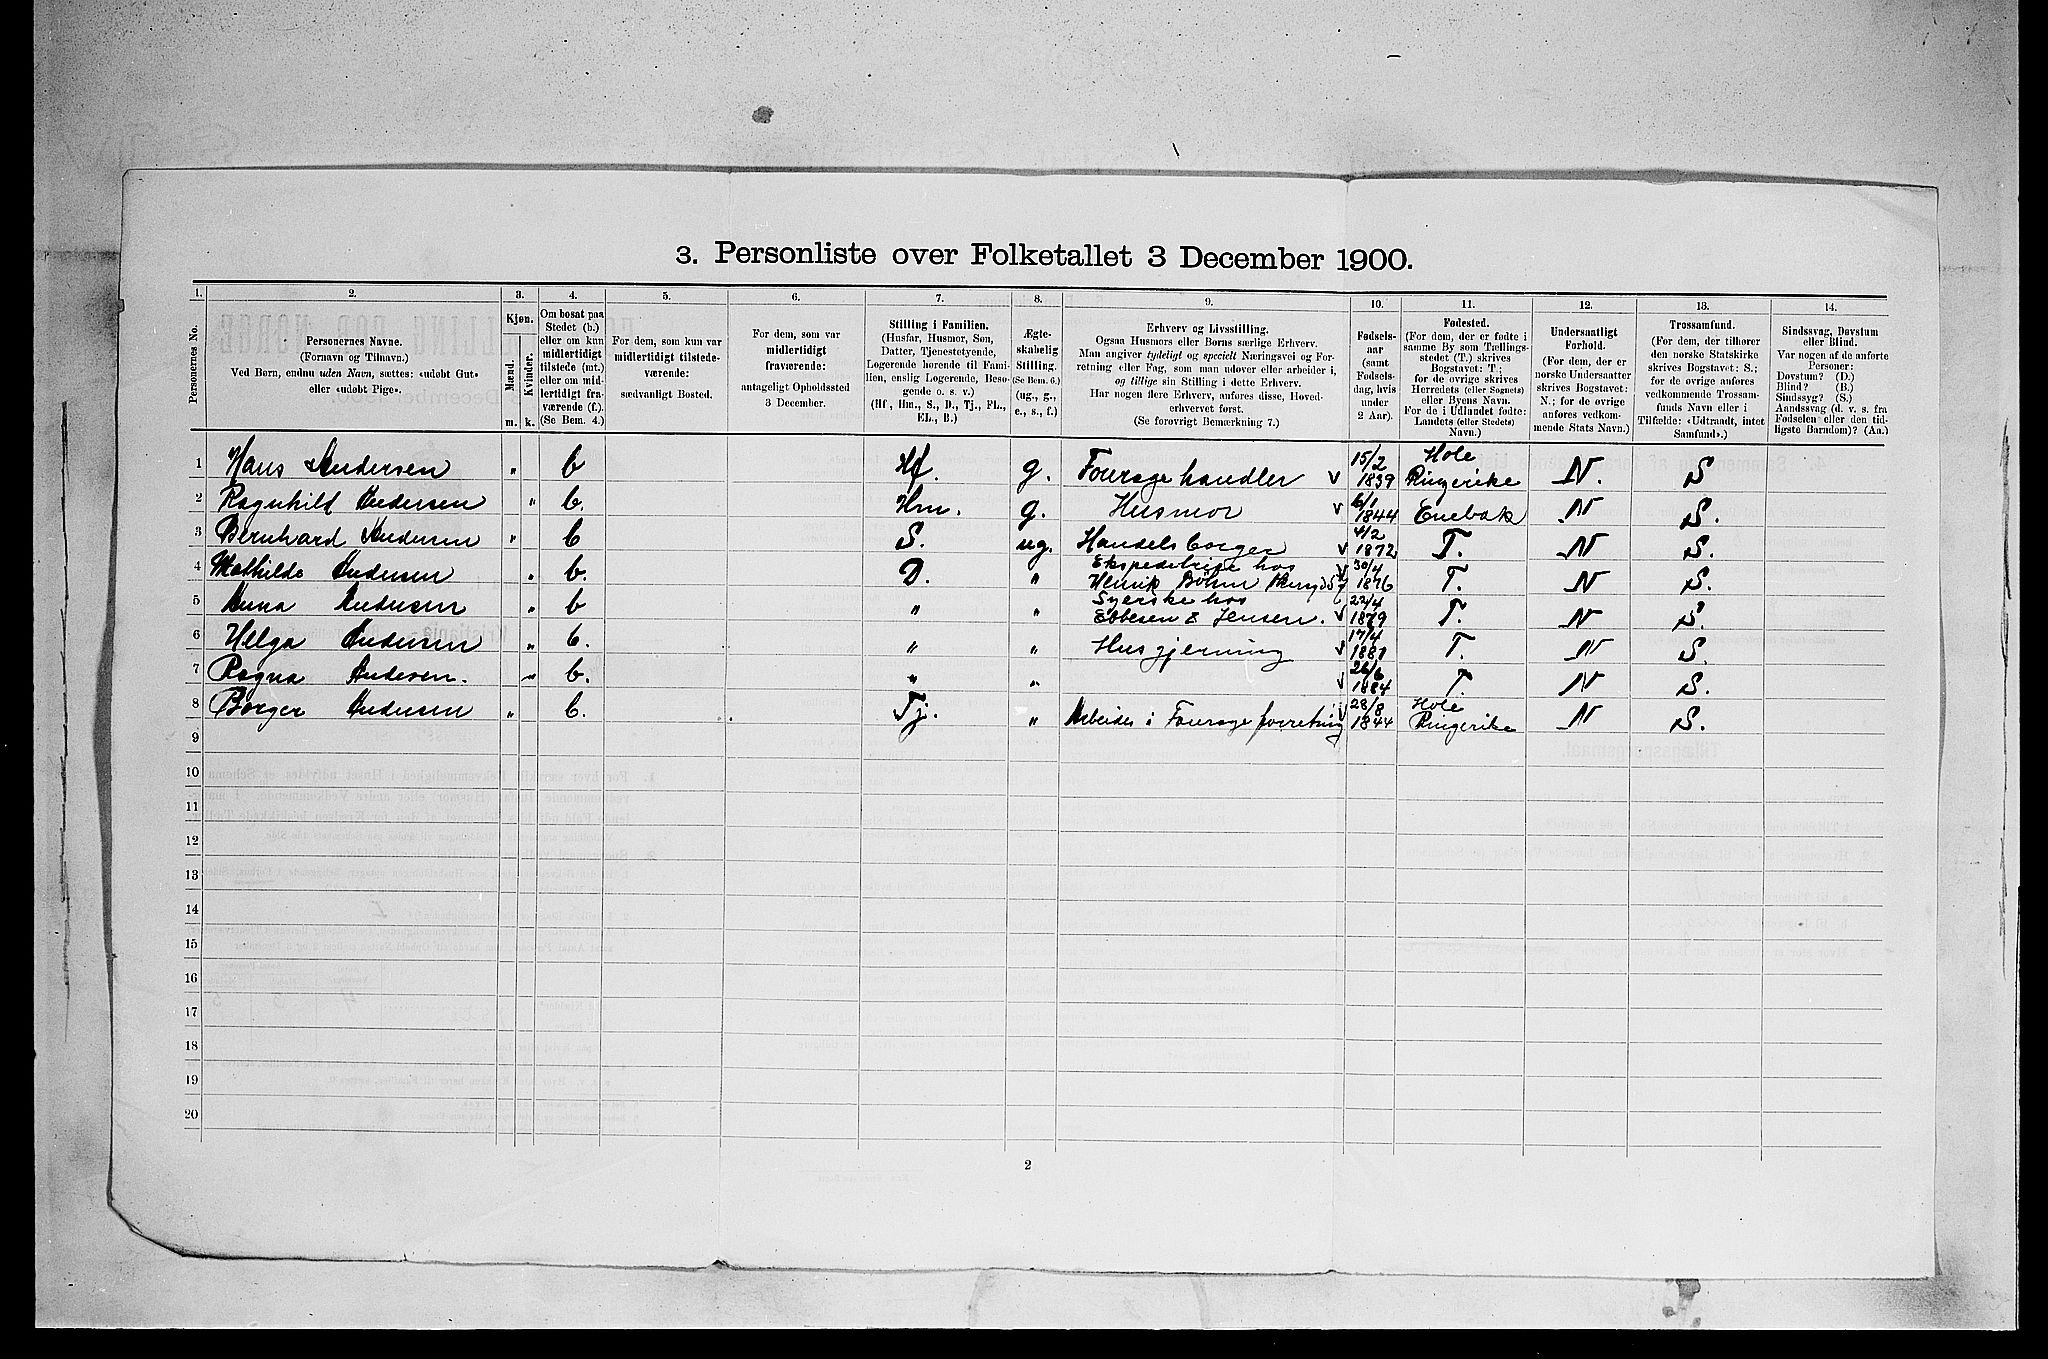 3. Personliste over Folketallet 3 December 1900.
1. 2. 3. 4. 5. 6. 7. 8. 9. 10. 11. 12. 13. 14.
Personernes No.
Personernes Navne.
(Fornavn og Tilnavn.)
Ved Børn, endnu uden Navn, sættes: «udøbt Gut»
eller «udøbt Pige».
Kjøn.
Mænd. Kvinder.
m. k.
Om bosat paa
Stedet (b.)
eller om kun
midlertidigt
tilstede (mt.)
eller om mid-
lertidigt fra-
værende (f.).
(Se Bem. 4.)
For dem, som kun var
midlertidigt tilstede-
værende:
sædvanligt Bosted.
For dem, som var
midlertidigt
fraværende:
antageligt Opholdssted
3 December.
Stilling i Familien.
(Husfar, Husmor, Søn,
Datter, Tjenestetyende,
Logerende hørende til Fami-
lien, enslig Logerende, Besø-
gende o. s. v.)
(Hf, Hm., S., D., Tj., FL.,
EL., B.)
Ægte-
skabelig
Stilling.
(Se Bem. 6.)
(ug., g.,
e., s., f.)
Erhverv og Livsstilling.
Ogsaa Husmors eller Børns særlige Erhverv.
Man angiver tydeligt og specielt Næringsvei og For-
retning eller Fag, som man udover eller arbeider i,
og tillige sin Stilling i dette Erhverv.
Har nogen flere Erhverv, anføres disse, Hoved-
erhvervet først.
(Se forøvrigt Bemærkning 7.)
Fødsels-
aar
(samt
Fødsels-
dag, hvis
under
2 Aar).
Fødested.
(For dem, der er fødte i
samme By som Tællings-
stedet (T.) skrives
Bogstavet: T.;
for de øvrige skrives
Herredets (eller Sognets)
eller Byens Navn.
For de i Udlandet fødte:
Landets (eller Stedets)
Navn.)
Undersaatligt
Forhold.
(For dem, der er
norske Undersaatter
skrives Bogstavet:
N.; for de øvrige
anføres vedkom-
mende Stats Navn.)
Trossamfund.
(For dem, der tilhører
den norske Statskirke
skrives Bogstavet: S.;
for de øvrige anføres
vedkommende Trossam-
funds Navn eller i
Tilfælde: «Udtraadt, intet
Samfund».)
Sindssvag, Døvstum
eller Blind.
Var nogen af de anførte
Personer:
Døvstum? (D.)
Blind? (B.)
Sindssyg? (S.)
Aandssvag (d. v. s. fra
Fødselen eller den tid-
ligste Barndom)? (Aa.)
1 Hans Andersen " b Hf. g. Fouragehandler v 15/2 1839 Hole Ringerike N. S
2 Ragnhild Andersen " b. Hm. g. Husmor v 6/1 1844 Enebak N S.
3 Bernhard Andersen " b S. ug. Handelsborger v 4/2 1872 T. N S.
4 Mathilde Andersen " b. D. " Ekspeditrise hos Henrik Bøhm 30/4 1876 T. N S.
5 Anna Andersen " b " " Syerske hos Ebbesen & Jensen. v 22/4 1879 T. N S.
6 Helga Andersen " b. " " Husgjerning v 17/4 1881 T. N S.
7 Ragna Andersen. " b. " " v 26/6 1884 T. N S.
8 Borger Andersen " b. Tj. " Arbeider i Fourageforretning 28/8 1844 Hole Ringerike N S.
9
10
11
12
13
14
15
16
17
18
19
20
2